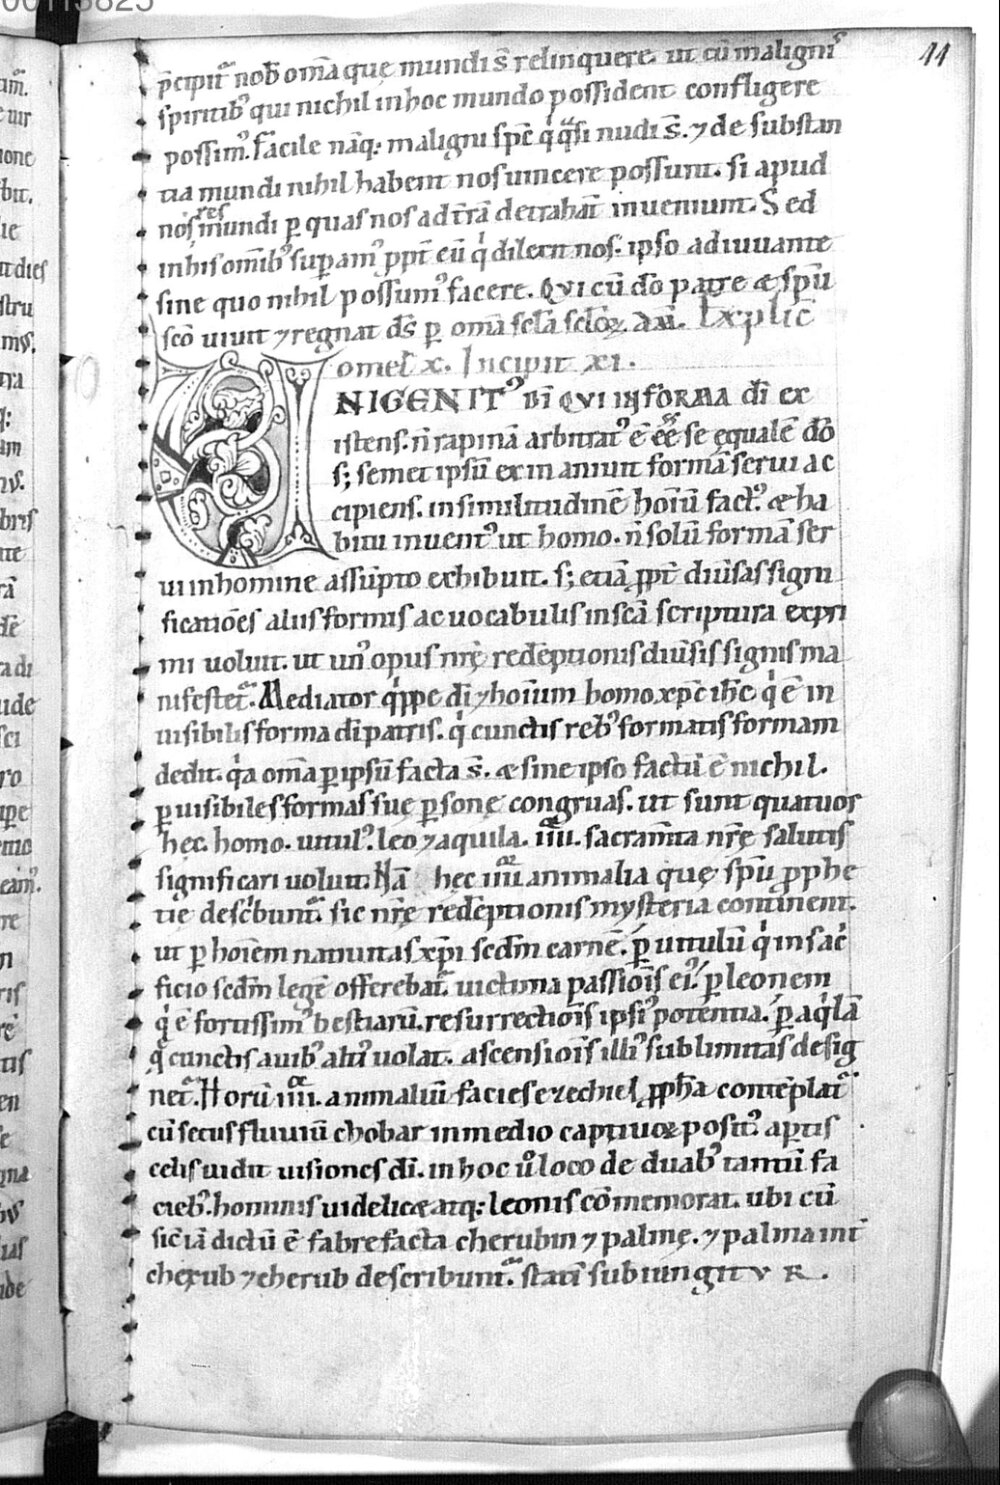 44
p̄cipit᷑ nob̄ om̄a quę mundi s̄ relinquere. ut cū maligniˢ
spiritib᷒ qui nichil in hoc mundo possident confligere
possim᷒. facile nāq; maligni sp̄c qͥ qᷓsi nudi s̄. ⁊ de substan
tia mundi nihil habent nos uincere possunt. si apud
nos res mundi ꝑ quas nos ad t̄rā detrahāt inueniunt. Sed
in his om̄ib᷒ suꝑam᷒ ꝓpt̄ eū qͥ dilexit nos. ipso adiuuante
sine quo nihil possum᷒ facere. Qui cū do patre & sp̄u
sc̄o uiuit ⁊ regnat d̄s ꝑ om̄a scl̄a scl̄oꝝ. am̄. Explic̄
omel̄ x. Incipit xi.
UNIGENIT᷒ D̄I QUI IN FORMA d̄i ex
istens. n̄ rapinā arbitrat᷒ ē eē se ęqualē d̄o
s; semet ipsū exinaniuit formā serui ac
cipiens. in similitudinē hoīu fact᷒. & ha
bitu inuent᷒ ut homo. n̄ solū formā ser
ui in homine assūpto exhibuit. s; etiā ꝓpt̄ diūsas signi
ficatiōes aliis formis ac uocabulis in scā scriptura expri
mi uoluit. ut un᷒ opus nr̄ę redēptionis diūsis signis ma
nifestet᷑. Mediator qͥppe d̄i ⁊ hoīum homo xp̄c ih̄c qͥ ē in
uisibilis forma d̄i patris. qͥ cunctis reb᷒ formatis formam
dedit. qͥa om̄a ꝑ ipsū facta s̄. & sine ipso factū ē nichil.
ꝑ uisibiles formas suę ꝑsonę congruas. ut sunt quatuor
hęc. homo. uitul᷒. leo ⁊ aquila. iiii. sacram̄ta nr̄ę salutis
significari uoluit. Nā hęc iiii animalia quę sp̄u ꝓphe
tie desc̄bunt᷑. sic nr̄ę redēptionis mysteria continent.
ut ꝑ hoīem natiuitas xp̄i scdm̄ carnē. ꝑ uitulū qͥ in sac̄
ficio scdm̄ legē offerebat᷑. uictima passiōis ei᷒. ꝑ leonem
qͥ ē fortissim᷒ bestiarū. resurrectiōis ipsi᷒ potentia. ꝑ aqͥlā
q̄ cunctis auib᷒ alti᷒ uolat. ascensiōis illi᷒ sublimitas desig
net᷑. Horū iiii. animaliū facies ezechiel ꝓph̄a contēplat᷑
cū secus fluuiū chobar in medio captiuoꝝ posit᷒ aꝑtis
celis uidit uisiones d̄i. in hoc ūo loco de duab᷒ tantū fa
cieb᷒. hominis uidelic& atq; leonis cōmemorat. ubi cū
sic̄ iā dictū ē fabrefacta cherubin ⁊ palmę. ⁊ palma int̄
cherub ⁊ cherub describunt᷑. statī subiungitur.